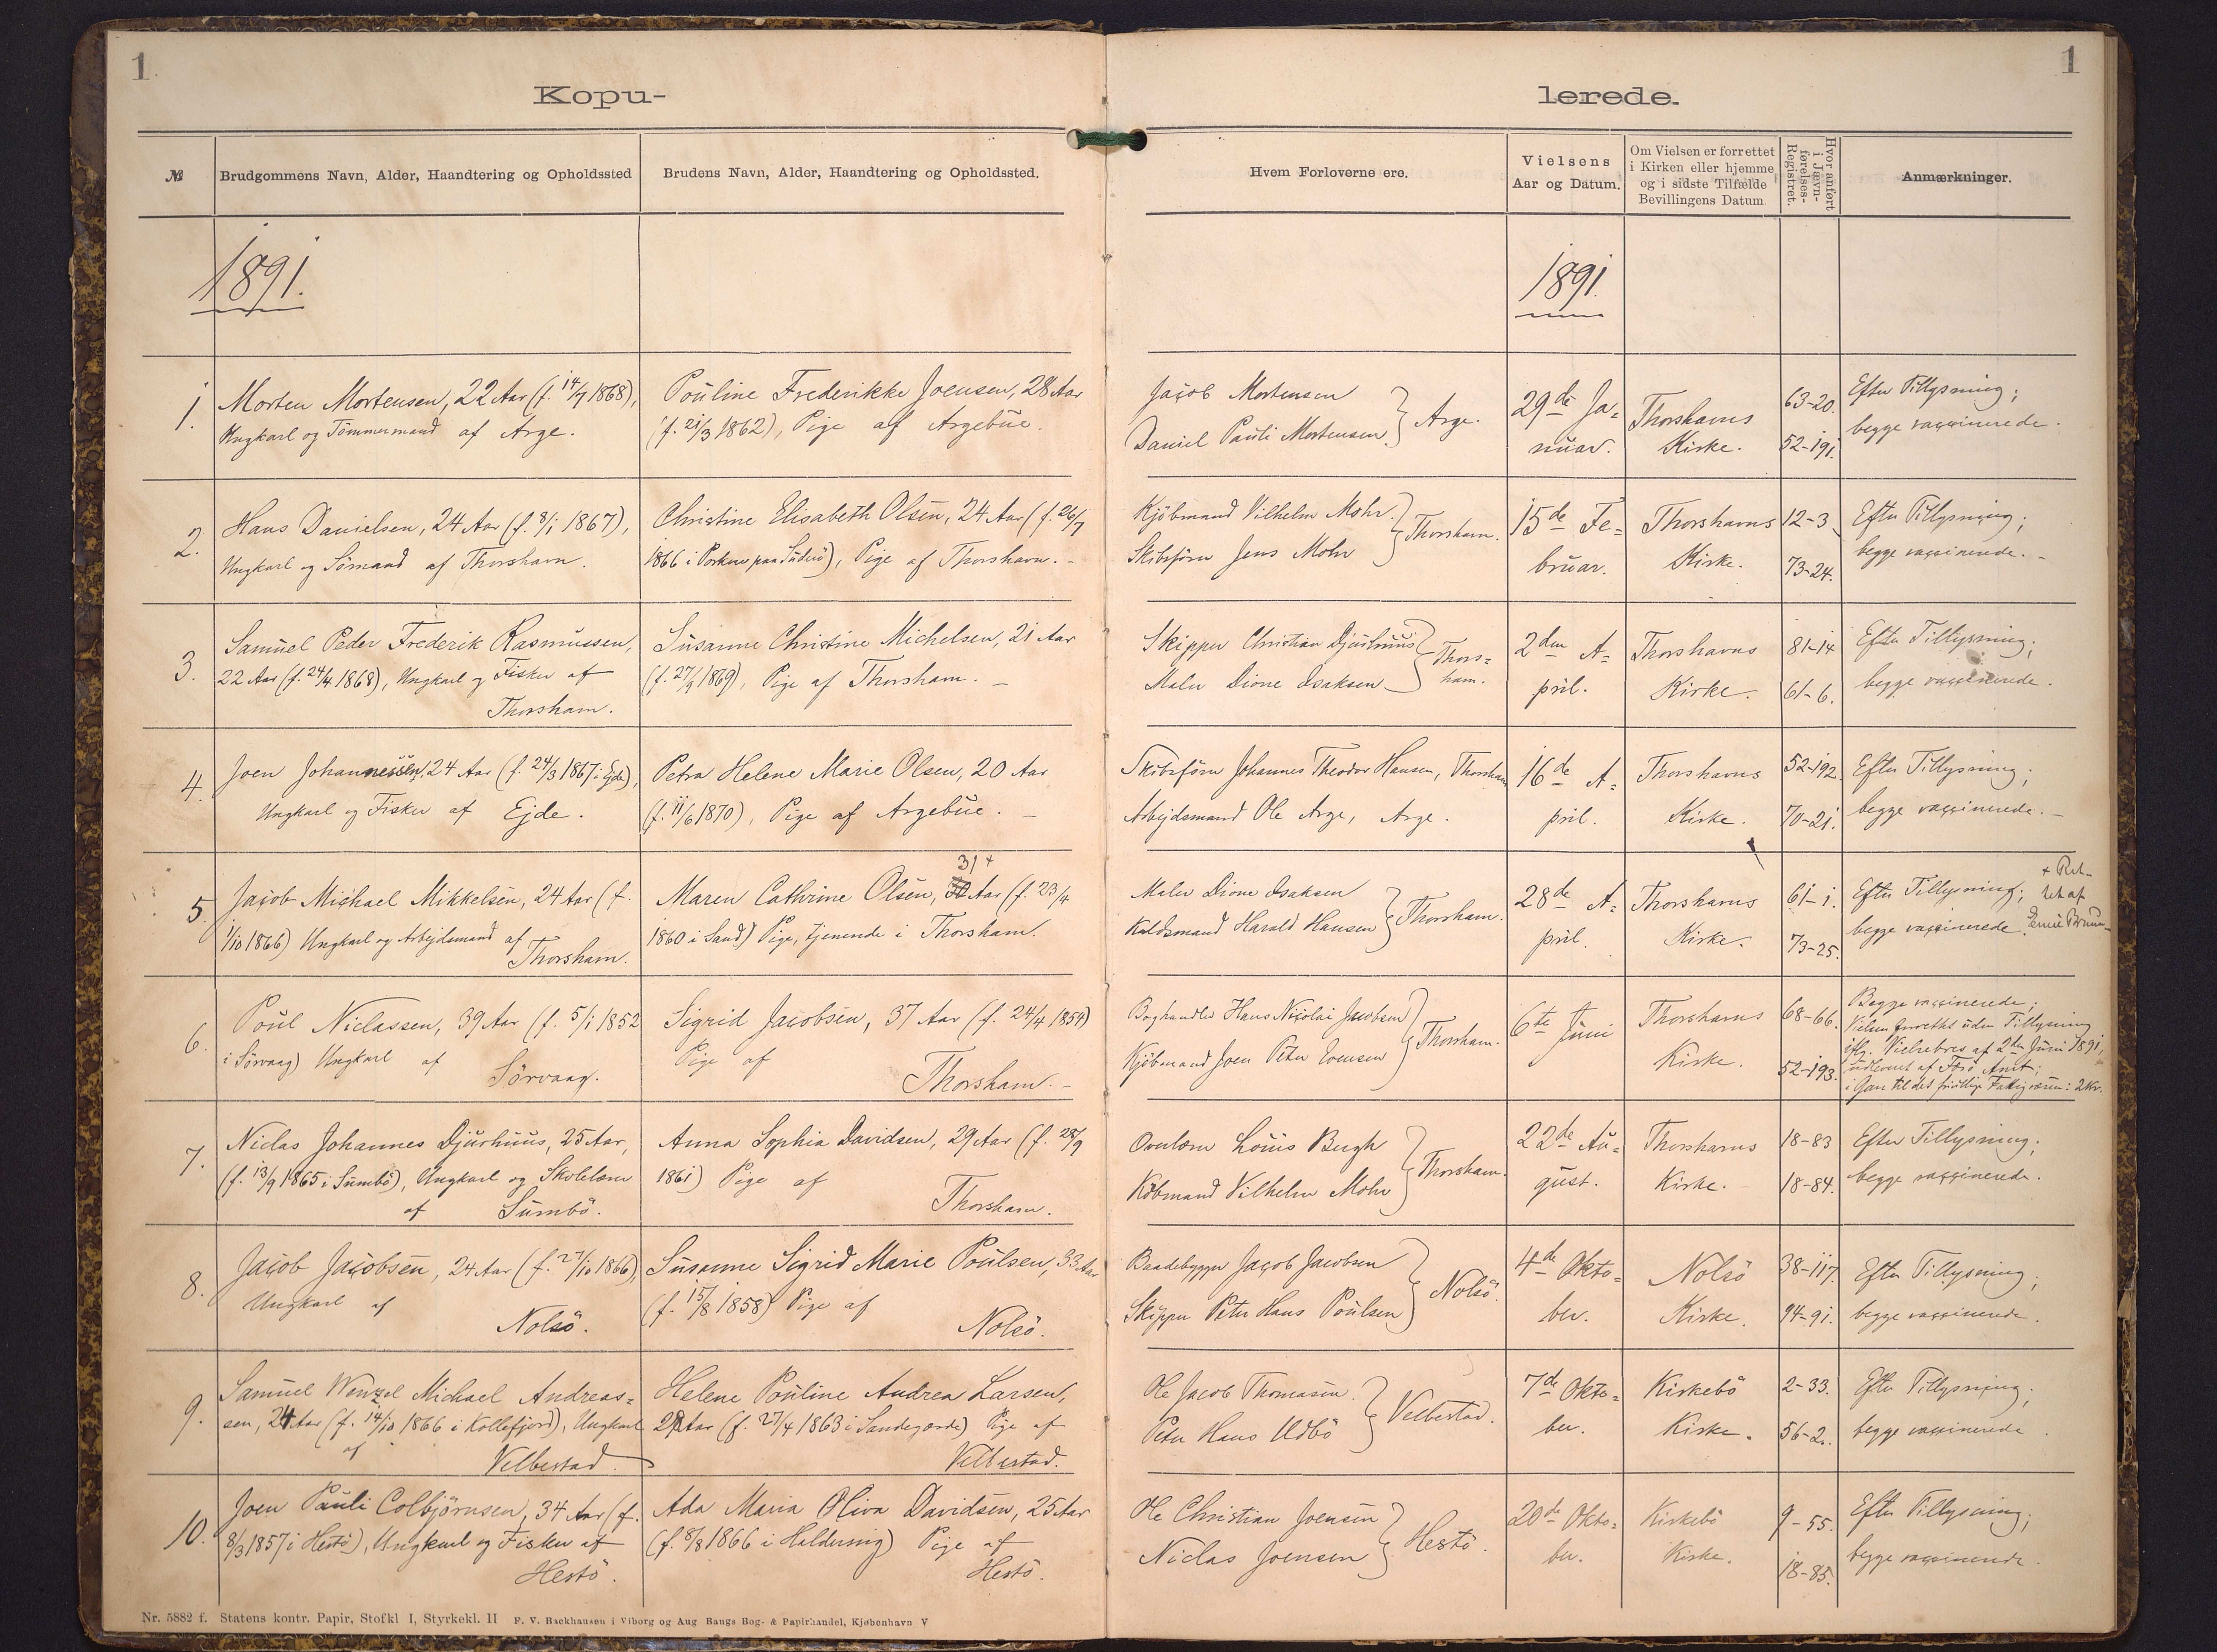 1.
1
Kopu-
lerede.
№
Brudgommens Navn, Alder, Haandtering og Opholdssted
Brudens Navn, Alder, Haandtering og Opholdssted.
Hvem Forloverne ere.
Vielsens
Aar og Datum.
Om Vielsen er forrettet
i Kirken eller hjemme
og i sidste Tilfælde
Bevillingens Datum
Hvor anført
i Jævn-
førelses-
Registret.
Anmærkninger.
1891.
1891.
1.
Morten Mortensen, 22 Aar (f. 14/7 1868),
Ungkarl og Tömmermand af Arge.
Pouline Frederikke Joensen, 28 Aar
(f. 21/3 1862), Pige af Argebue.
Jacob Mortensen
Daniel Pauli Mortensen } Arge.
29de Ja-
nuar.
Thorshavns
Kirke.
63-20.
52-191.
Efter Tillysning;
begge vaccinerede.
2.
Hans Danielsen, 24 Aar (f. 8/1 1867),
Ungkarl og Sömand af Thorshavn.
Christine Elisabeth Olsen, 24 Aar (f. 26/7
1866 i Porkere paa Süderö), Pige af Thorshavn. -
Kjöbmand Vilhelm Mohr
Skibsförer Jens Mohr } Thorshavn.
15de Fe-
bruar.
Thorshavns
Kirke.
12-3
73-24.
Efter Tillysning;
begge vaccinerede. -
3.
Samuel Peder Frederik Rasmussen,
22 Aar (f. 24/4 1868), Ungkarl og Fisker af
Thorshavn.
Susanne Christine Michelsen, 21 Aar
(f. 27/9 1869), Pige af Thorshavn. -
Skipper Christian Djurhuus
Maler Dione Isaksen } Thors-
havn.
2den A-
pril.
Thorshavns
Kirke.
81-14
61-6.
Efter Tillysning;
begge vaccinerede.
4.
Joen Johannessen, 24 Aar (f. 24/3 1867 i Ejde),
Ungkarl og Fisker af Ejde.
Petra Helene Marie Olsen, 20 Aar
(f. 11/6 1870), Pige af Argebue. -
Skibsförer Johannes Theodor Hansen, Thorshavn
Arbejdsmand Ole Arge, Arge.
16de A-
pril.
Thorshavns
Kirke.
52-192.
70-21.
Efter Tillysning;
begge vaccinerede. -
5.
Jacob Michael Mikkelsen, 24 Aar (f.
1/10 1866) Ungkarl og Arbejdsmand af
Thorshavn.
31 +
Maren Cathrine Olsen, 30 Aar (f. 23/4
1860 i Sand) Pige, tjenende i Thorshavn.
Maler Dione Isaksen
Harald Hansen } Thorshavn.
28de A-
pril.
Thorshavns
Kirke.
61-1.
73-25.
Efter Tillysning;
begge vaccinerede.
+ Ret-
tet af
6.
Poul Niclassen, 39 Aar (f. 5/1 1852
i Sörvaag) Ungkarl af
Sörvaag.
Sigrid Jacobsen, 37 Aar (f. 24/4 1854)
Pige af
Thorshavn. -
Boghandler Hans Nicolai Jacobsen
Kjöbmand Joen Peter Evensen } Thorshavn.
6te Juni
Thorshavns
Kirke.
68-66.
52-193.
Begge vaccinerede;
Vielsen forrettet uden Tillysning
iflg. Vielsebrev af 2den Juni 1891,
udstedt af Færö Amt;
i Gave til det frivillige Fattigvæsen: 2 Kr.
7.
Niclas Johannes Djurhuus, 25 Aar,
(f. 13/9 1865 i Sumbö), Ungkarl og Skolelærer
af Sumbö.
Anna Sophia Davidsen, 29 Aar (f. 28/9
1861) Pige af
Thorshavn.
Overlærer Louis Bergh
Köbmand Vilhelm Mohr } Thorshavn.
22de Au-
gust.
Thorshavns
Kirke.
18-83
18-84.
Efter Tillysning;
begge vaccinerede.
8.
Jacob Jacobsen, 24 Aar (f. 27/10 1866),
Ungkarl af
Nolsö.
Susanne Sigrid Marie Poulsen, 33 Aar
(f. 15/8 1858) Pige af
Nolsö.
Baadebygger Jacob Jacobsen
Skipper Peter Hans Poulsen } Nolsö.
4de Okto-
ber.
Nolsö
Kirke.
38-117.
94-91.
Efter Tillysning;
begge vaccinerede.
9.
Samuel Wenzel Michael Andreas-
sen, 24 Aar (f. 14/10 1866 i Kollefjord), Ungkarl
af Velbestad
Helene Pouline Andrea Larsen,
28 Aar (f. 27/4 1863 i Sandegærde) Pige af
Velbestad.
Ole Jacob Thomasen
Peter Hans Udbö } Velbestad.
7de Okto-
ber.
Kirkebö
Kirke.
2-33.
56-2.
Efter Tillysning;
begge vaccinerede
10.
Joen Pauli Colbjörnsen, 34 Aar (f.
8/3 1857 i Hestö), Ungkarl og Fisker af
Hestö.
Ada Maria Oliva Davidsen, 25 Aar
(f. 8/8 1866 i Haldersvig) Pige af
Hestö.
Ole Christian Joensen
Niclas Joensen } Hestö.
20de Okto-
ber.
Kirkebö
Kirke.
9-55.
18-85.
Efter Tillysning;
begge vaccinerede.
Nr. 5882 f. Statens kontr. Papir, Stofkl I, Styrkekl. II F. V. Backhausen i Viborg og Aug Bangs Bog- & Papirhandel, Kjøbenhavn V